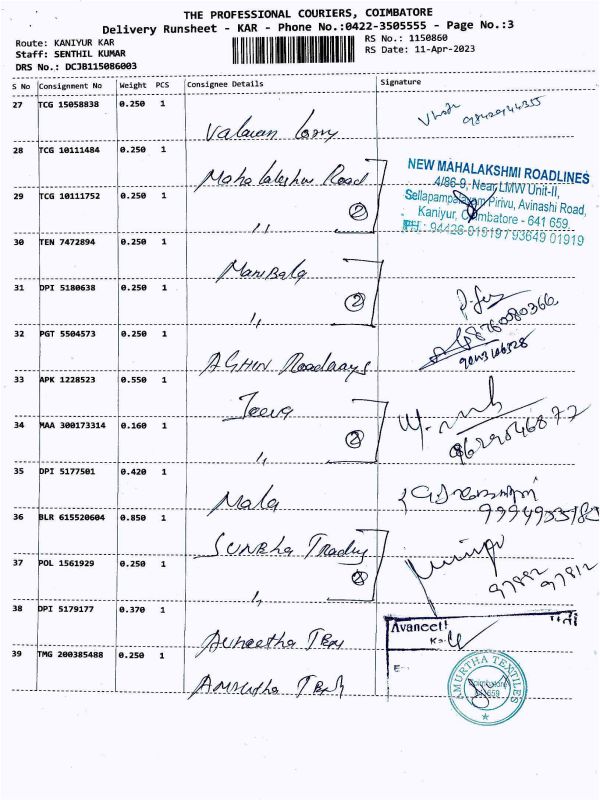 THE PROFESSIONAL COURIERS, COIMBATORE
Delivery Runsheet - KAR - Phone No.:0422-3505555 - Page No.:3
Route: KANIYUR KAR
RS No.: 1150860
Staff: SENTHIL KUMAR
RS Date: 11-Apr-2023
DRS No.: DCJB115086003
S No Consignment No Weight PCS Consignee Details Signature
27 TCG 15058838 0.250 1
28 TCG 10111484 0.250 1
Mahalakshmi Road
NEW MAHALAKSHMI ROADLINES
4/86-9, Near LMW Unit-II,
29 TCG 10111752 0.250 1
② Sellapampalayam Pirivu, Avinashi Road,
,, Kaniyur, Coimbatore - 641 659.
PH : 94426 01919 / 93649 01919
30 TEN 7472894 0.250 1
Manibala
31 DPI 5180638 0.250 1
②
,,
32 PGT 5504573 0.250 1
8760080366
ASHIN Roadways
33 APK 1228523 0.550 1
Jeeva
34 MAA 300173314 0.160 1
②
,,
35 DPI 5177501 0.420 1
Mala
36 BLR 615520604 0.850 1
37 POL 1561929 0.250 1
②
,,
38 DPI 5179177 0.370 1
Avaneet
Avneetha Tex
39 TMG 200385488 0.250 1
AMURTHA TEXTILES
Coimbatore
641 659
Amurtha Tex